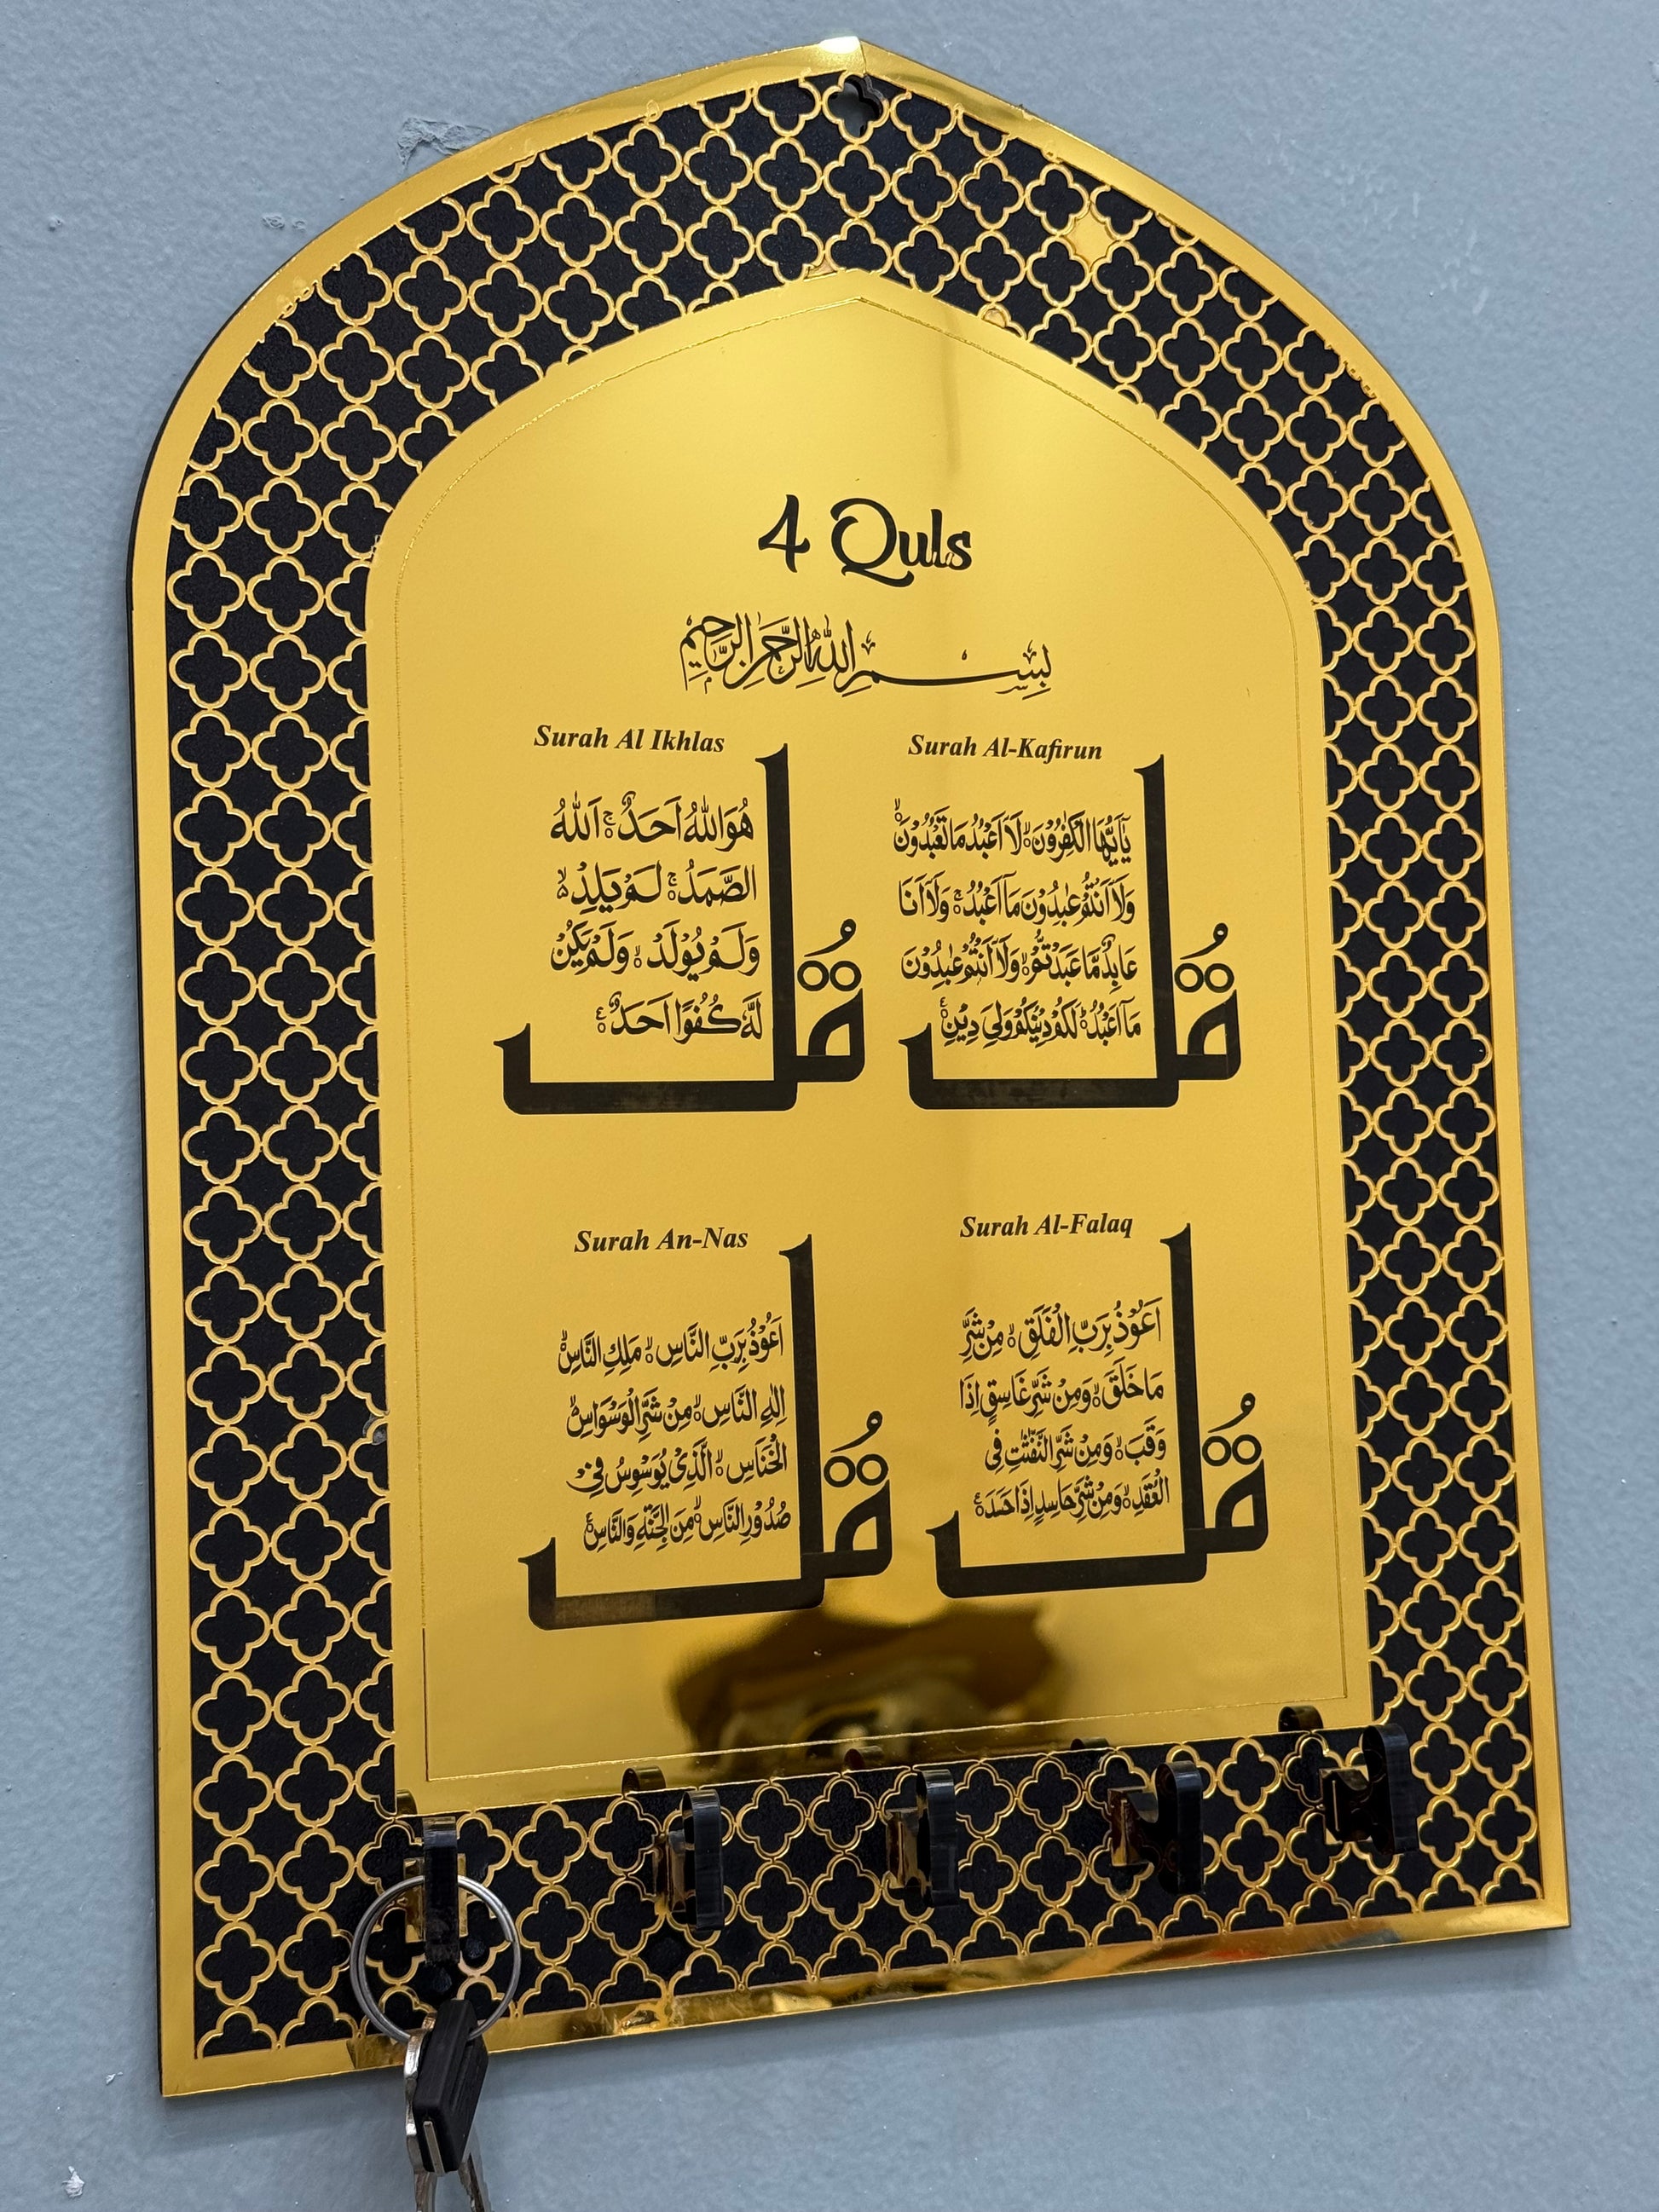 4 Quls
بِسْمِ اللهِ الرَّحْمٰنِ الرَّحِيْمِ
Surah Al Ikhlas
قُلْ
هُوَ اللهُ اَحَدٌ ۚ اَللهُ
الصَّمَدُ ۚ لَمْ يَلِدْ ۙ
وَلَمْ يُوْلَدْ ۙ وَلَمْ يَكُنْ
لَّهٗ كُفُوًا اَحَدٌ
Surah Al-Kafirun
قُلْ
يٰٓاَيُّهَا الْكٰفِرُوْنَ ۙ لَآ اَعْبُدُ مَا تَعْبُدُوْنَ ۙ
وَلَآ اَنْتُمْ عٰبِدُوْنَ مَآ اَعْبُدُ ۚ وَلَآ اَنَا
عَابِدٌ مَّا عَبَدْتُّمْ ۙ وَلَآ اَنْتُمْ عٰبِدُوْنَ
مَآ اَعْبُدُ ۗ لَكُمْ دِيْنُكُمْ وَلِيَ دِيْنِ
Surah An-Nas
قُلْ
اَعُوْذُ بِرَبِّ النَّاسِ ۙ مَلِكِ النَّاسِ ۙ
اِلٰهِ النَّاسِ ۙ مِنْ شَرِّ الْوَسْوَاسِ ۙ
الْخَنَّاسِ ۙ الَّذِيْ يُوَسْوِسُ فِيْ
صُدُوْرِ النَّاسِ ۙ مِنَ الْجِنَّةِ وَالنَّاسِ
Surah Al-Falaq
قُلْ
اَعُوْذُ بِرَبِّ الْفَلَقِ ۙ مِنْ شَرِّ
مَا خَلَقَ ۙ وَمِنْ شَرِّ غَاسِقٍ اِذَا
وَقَبَ ۙ وَمِنْ شَرِّ النَّفّٰثٰتِ فِى
الْعُقَدِ ۙ وَمِنْ شَرِّ حَاسِدٍ اِذَا حَسَدَ